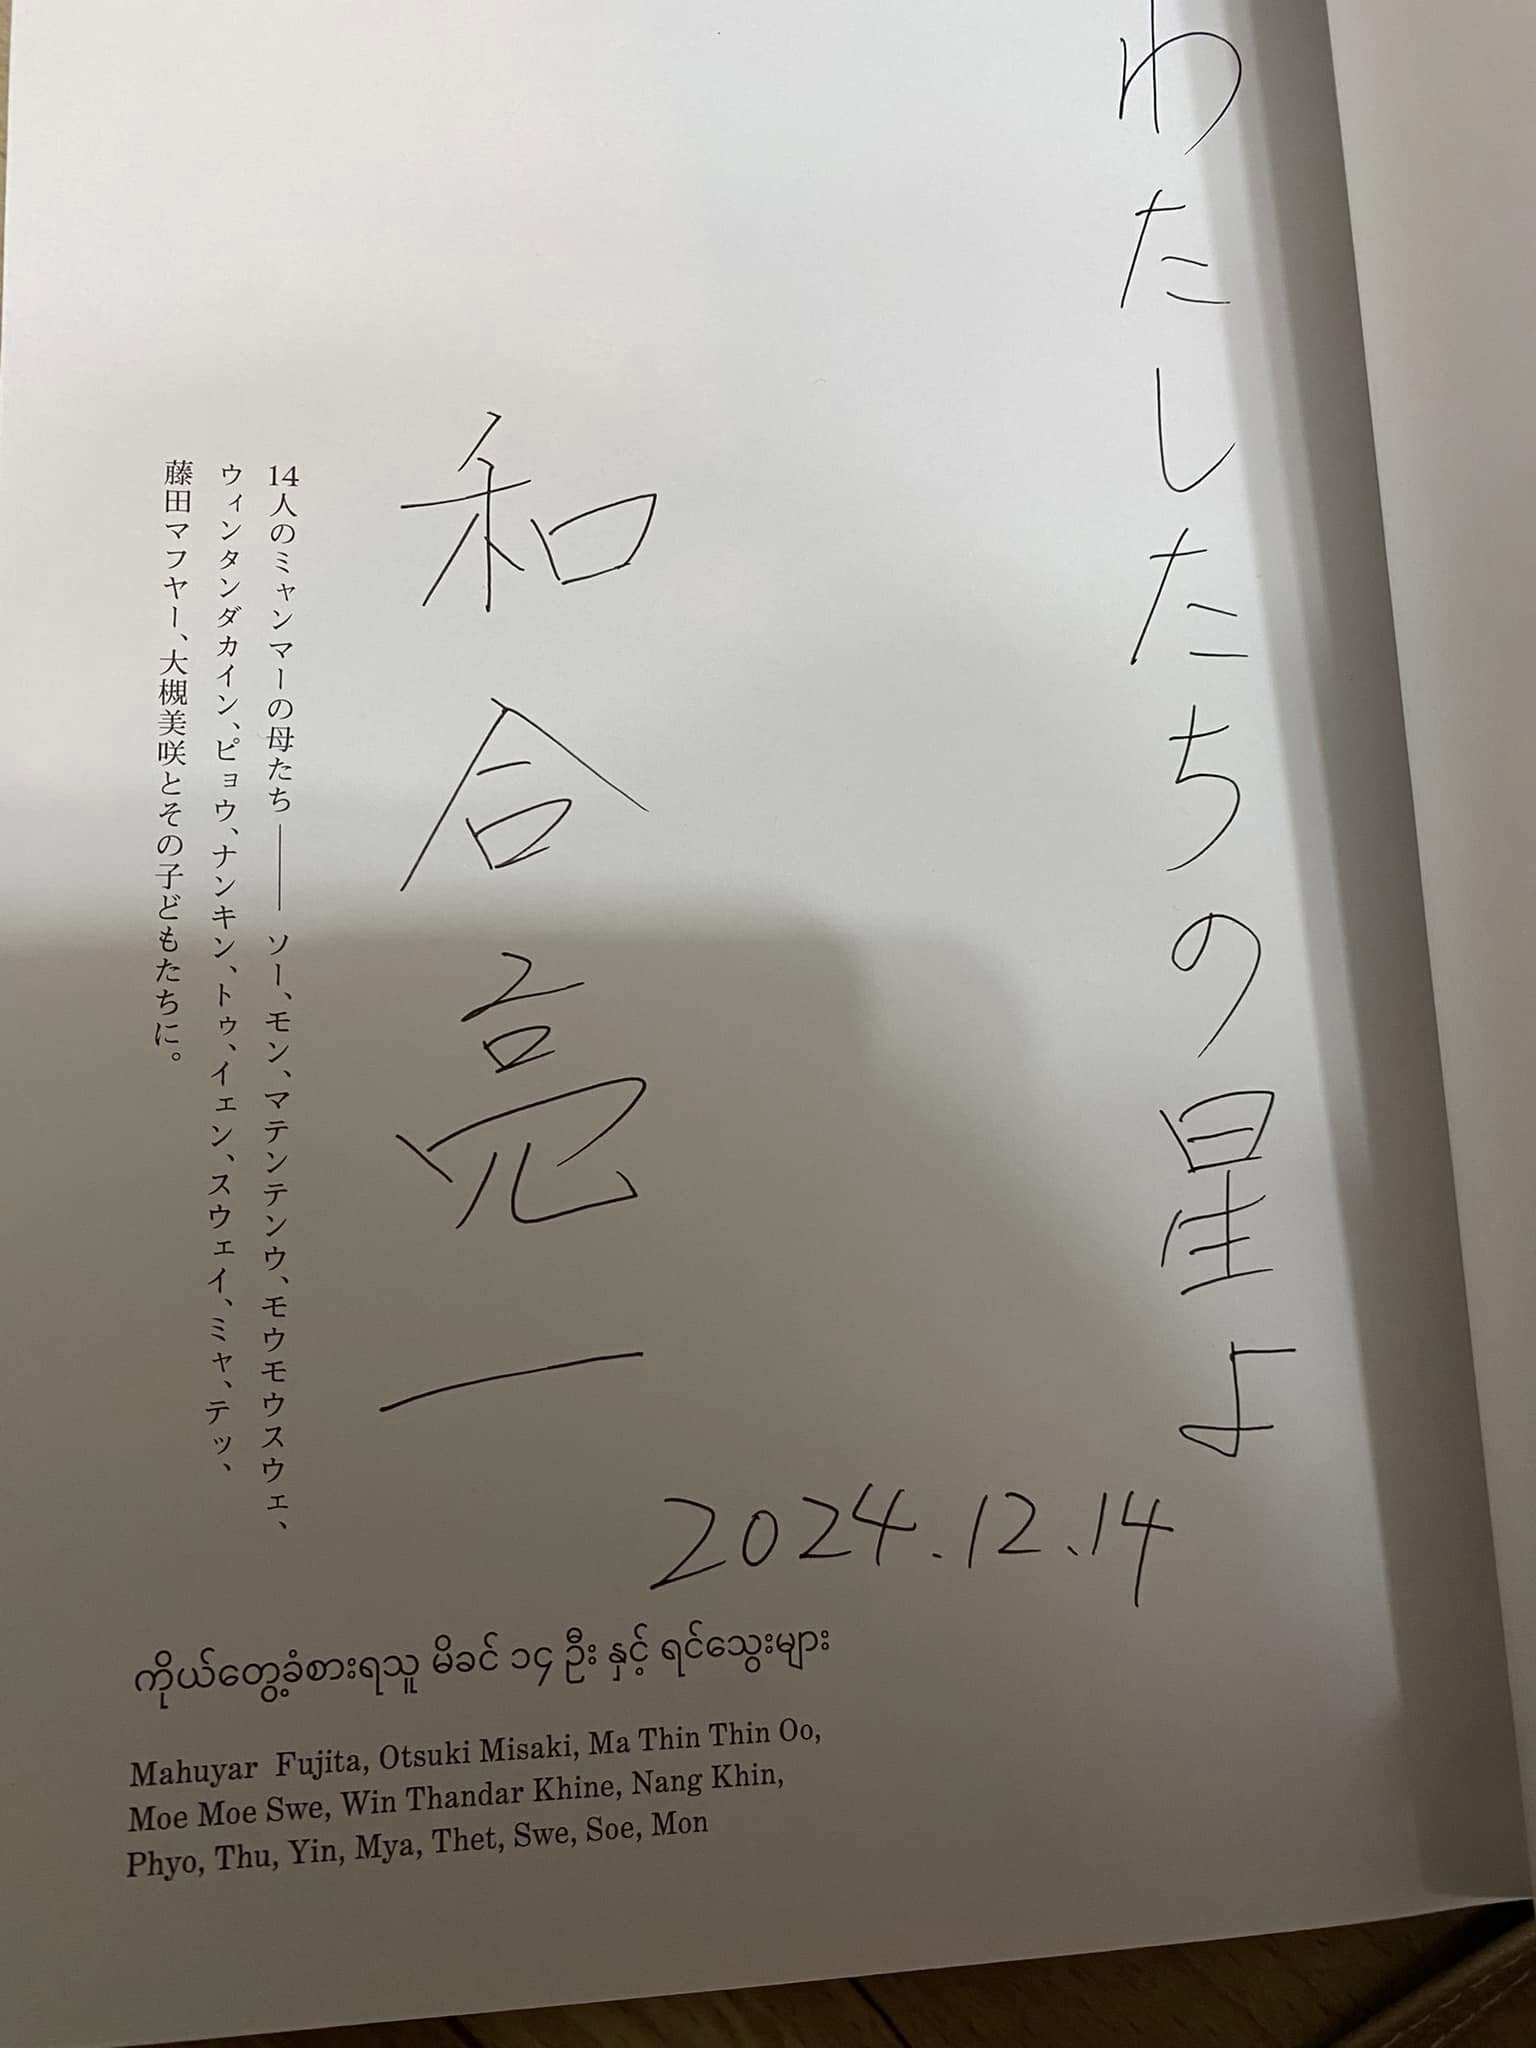 わたしたちの星よ
和合亮一
2024.12.14
14人のミャンマーの母たち―― ソー、モン、マテンテンウ、モウモウスウェ、
ウィンタンダカイン、ピョウ、ナンキン、トゥ、イェン、スウェイ、ミャ、テッ、
藤田マフヤー、大槻美咲とその子どもたちに。
ကိုယ်တွေ့ခံစားရသူ မိခင် ၁၄ ဦး နှင့် ရင်သွေးများ
Mahuyar Fujita, Otsuki Misaki, Ma Thin Thin Oo,
Moe Moe Swe, Win Thandar Khine, Nang Khin,
Phyo, Thu, Yin, Mya, Thet, Swe, Soe, Mon